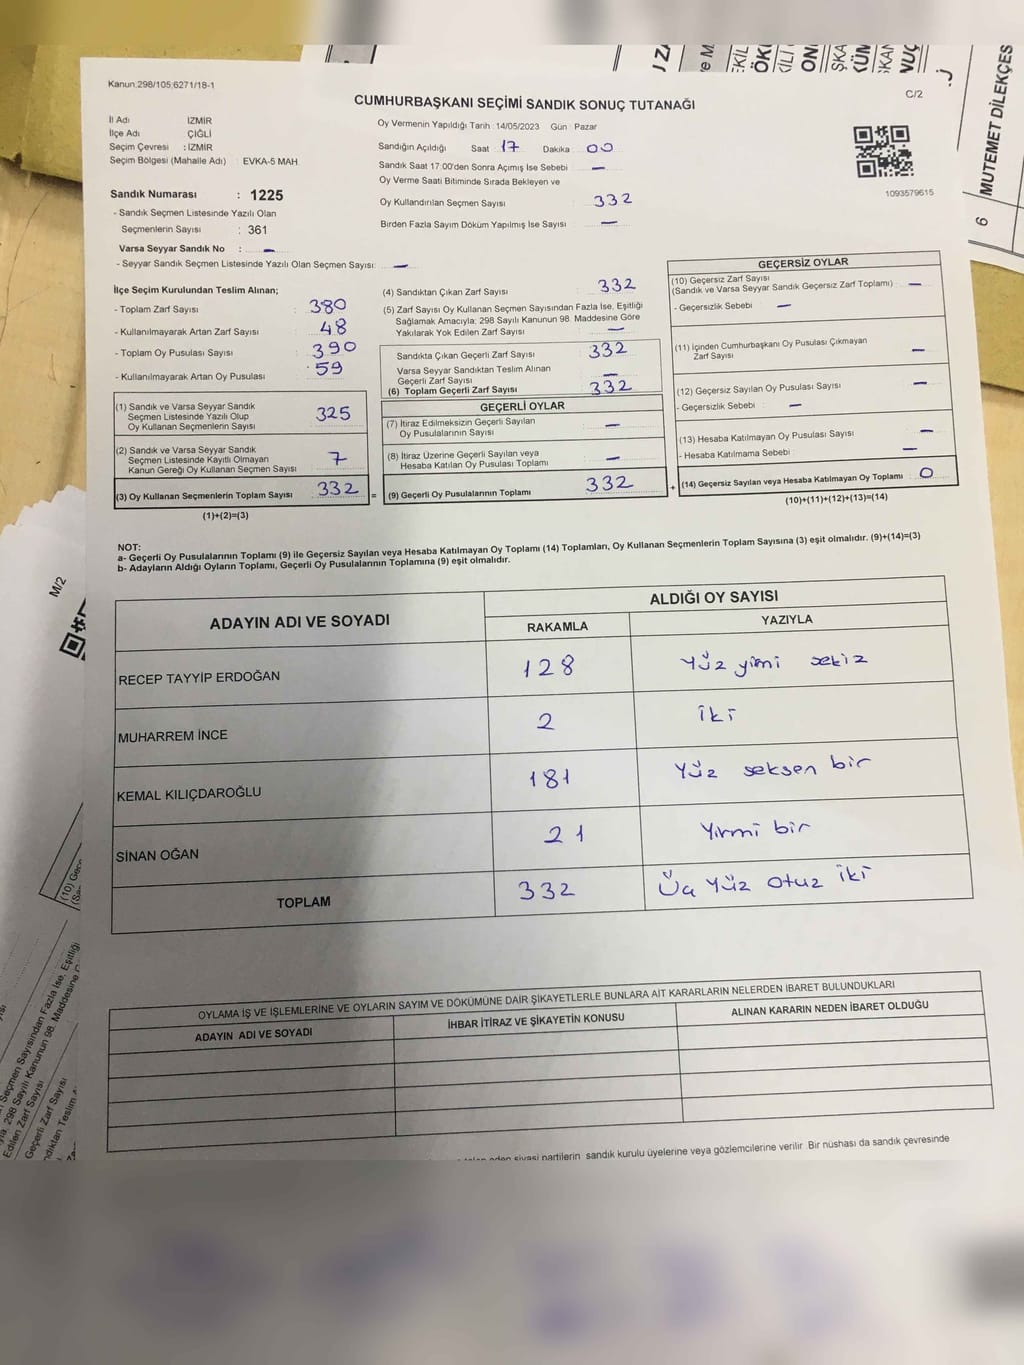 Kanun:298/105;6271/18-1
C/2
CUMHURBAŞKANI SEÇİMİ SANDIK SONUÇ TUTANAĞI
İl Adı İZMİR
İlçe Adı ÇİĞLİ
Seçim Çevresi : İZMİR
Seçim Bölgesi (Mahalle Adı) : EVKA-5 MAH
Sandık Numarası : 1225
- Sandık Seçmen Listesinde Yazılı Olan
Seçmenlerin Sayısı : 361
Varsa Seyyar Sandık No : —
- Seyyar Sandık Seçmen Listesinde Yazılı Olan Seçmen Sayısı: —
Oy Vermenin Yapıldığı Tarih : 14/05/2023 Gün : Pazar
Sandığın Açıldığı Saat 17 Dakika 00
Sandık Saat 17:00'den Sonra Açımış İse Sebebi —
Oy Verme Saati Bitiminde Sırada Bekleyen ve
Oy Kullandırılan Seçmen Sayısı : 332
Birden Fazla Sayım Döküm Yapılmış İse Sayısı : —
1093579615
İlçe Seçim Kurulundan Teslim Alınan;
- Toplam Zarf Sayısı : 380
- Kullanılmayarak Artan Zarf Sayısı : 48
- Toplam Oy Pusulası Sayısı : 390
- Kullanılmayarak Artan Oy Pusulası : 59
(1) Sandık ve Varsa Seyyar Sandık
Seçmen Listesinde Yazılı Olup
Oy Kullanan Seçmenlerin Sayısı 325
(2) Sandık ve Varsa Seyyar Sandık
Seçmen Listesinde Kayıtlı Olmayan
Kanun Gereği Oy Kullanan Seçmen Sayısı 7
(3) Oy Kullanan Seçmenlerin Toplam Sayısı 332 =
(1)+(2)=(3)
(4) Sandıktan Çıkan Zarf Sayısı : 332
(5) Zarf Sayısı Oy Kullanan Seçmen Sayısından Fazla İse, Eşitliği
Sağlamak Amacıyla; 298 Sayılı Kanunun 98. Maddesine Göre
Yakılarak Yok Edilen Zarf Sayısı —
Sandıkta Çıkan Geçerli Zarf Sayısı : 332
Varsa Seyyar Sandıktan Teslim Alınan
Geçerli Zarf Sayısı —
(6) Toplam Geçerli Zarf Sayısı : 332
GEÇERLİ OYLAR
(7) İtiraz Edilmeksizin Geçerli Sayılan
Oy Pusulalarının Sayısı —
(8) İtiraz Üzerine Geçerli Sayılan veya
Hesaba Katılan Oy Pusulası Toplamı —
(9) Geçerli Oy Pusulalarının Toplamı 332 +
GEÇERSİZ OYLAR
(10) Geçersiz Zarf Sayısı
(Sandık ve Varsa Seyyar Sandık Geçersiz Zarf Toplamı) : —
- Geçersizlik Sebebi : —
(11) İçinden Cumhurbaşkanı Oy Pusulası Çıkmayan
Zarf Sayısı —
(12) Geçersiz Sayılan Oy Pusulası Sayısı : —
- Geçersizlik Sebebi : —
(13) Hesaba Katılmayan Oy Pusulası Sayısı : —
- Hesaba Katılmama Sebebi : —
(14) Geçersiz Sayılan veya Hesaba Katılmayan Oy Toplamı : 0
(10)+(11)+(12)+(13)=(14)
NOT:
a- Geçerli Oy Pusulalarının Toplamı (9) ile Geçersiz Sayılan veya Hesaba Katılmayan Oy Toplamı (14) Toplamları, Oy Kullanan Seçmenlerin Toplam Sayısına (3) eşit olmalıdır. (9)+(14)=(3)
b- Adayların Aldığı Oyların Toplamı, Geçerli Oy Pusulalarının Toplamına (9) eşit olmalıdır.
ADAYIN ADI VE SOYADI
ALDIĞI OY SAYISI
RAKAMLA YAZIYLA
RECEP TAYYİP ERDOĞAN 128 Yüz yimi sekiz
MUHARREM İNCE 2 iki
KEMAL KILIÇDAROĞLU 181 Yüz seksen bir
SİNAN OĞAN 21 Yirmi bir
TOPLAM 332 Üç Yüz otuz iki
OYLAMA İŞ VE İŞLEMLERİNE VE OYLARIN SAYIM VE DÖKÜMÜNE DAİR ŞİKAYETLERLE BUNLARA AİT KARARLARIN NELERDEN İBARET BULUNDUKLARI
ADAYIN ADI VE SOYADI İHBAR İTİRAZ VE ŞİKAYETİN KONUSU ALINAN KARARIN NEDEN İBARET OLDUĞU
siyasi partilerin sandık kurulu üyelerine veya gözlemcilerine verilir. Bir nüshası da sandık çevresinde
6 MUTEMET DİLEKÇES
M/2
(10) Geçe
Seçmen Sayısından Fazla İse, Eşitliği
298 Sayılı Kanunun 98. Maddesine
Edilen Zarf Sayısı
Geçerli Zarf Sayısı